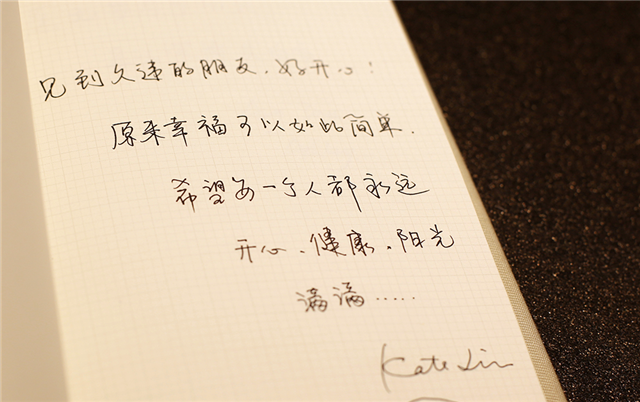 见到久违的朋友,好开心!
原来幸福可以如此简单.
希望每一个人都永远
开心、健康、阳光
满满……
Kate Lin